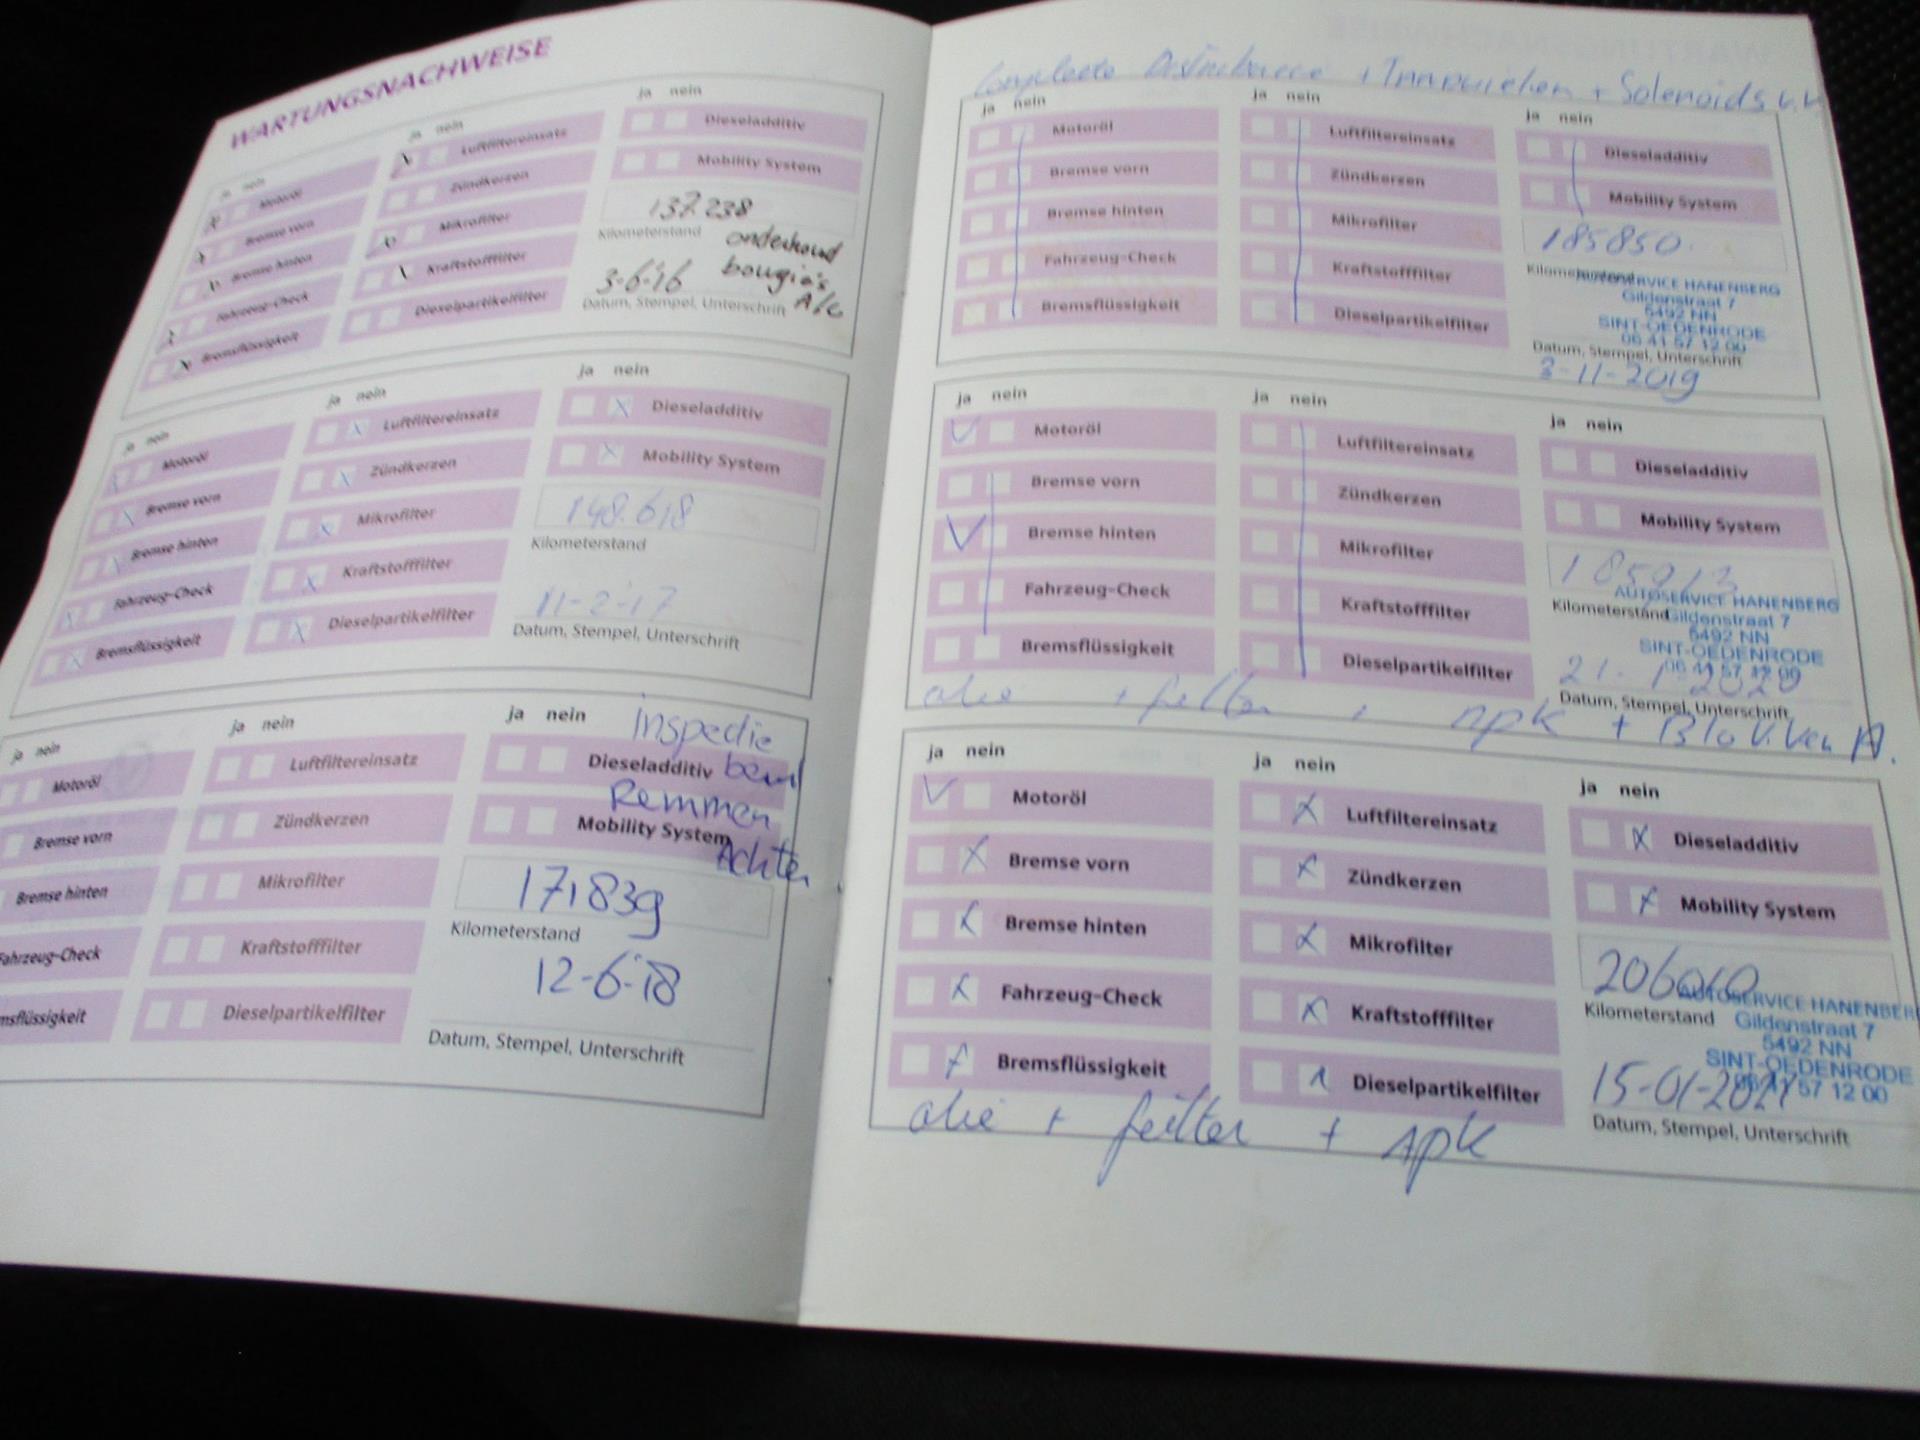 WARTUNGSNACHWEISE
ja nein
Motoröl
Bremse vorn
Bremse hinten
Fahrzeug-Check
Bremsflüssigkeit
ja nein
Luftfiltereinsatz
Zündkerzen
Mikrofilter
Kraftstofffilter
Dieselpartikelfilter
ja nein
Dieseladditiv
Mobility System
137.238
Kilometerstand
onderhoud
bougie's
A/C
3-6-'16
Datum, Stempel, Unterschrift
ja nein
Motoröl
Bremse vorn
Bremse hinten
Fahrzeug-Check
Bremsflüssigkeit
ja nein
Luftfiltereinsatz
Zündkerzen
Mikrofilter
Kraftstofffilter
Dieselpartikelfilter
ja nein
Dieseladditiv
Mobility System
148.618
Kilometerstand
11-2-'17
Datum, Stempel, Unterschrift
ja nein
Motoröl
Bremse vorn
Bremse hinten
Fahrzeug-Check
msflüssigkeit
ja nein
Luftfiltereinsatz
Zündkerzen
Mikrofilter
Kraftstofffilter
Dieselpartikelfilter
ja nein
inspectie
Dieseladditiv
Remmen
Mobility System
Achter
171839
Kilometerstand
12-6-'18
Datum, Stempel, Unterschrift
Complete + + Solenoids
ja nein
Motoröl
Bremse vorn
Bremse hinten
Fahrzeug-Check
Bremsflüssigkeit
ja nein
Luftfiltereinsatz
Zündkerzen
Mikrofilter
Kraftstofffilter
Dieselpartikelfilter
ja nein
Dieseladditiv
Mobility System
185850
Kilometerstand
AUTOSERVICE HANENBERG
Gildenstraat 7
5492 NN
SINT-OEDENRODE
06 41 57 12 00
Datum, Stempel, Unterschrift
3-11-2019
ja nein
Motoröl
Bremse vorn
Bremse hinten
Fahrzeug-Check
Bremsflüssigkeit
ja nein
Luftfiltereinsatz
Zündkerzen
Mikrofilter
Kraftstofffilter
Dieselpartikelfilter
ja nein
Dieseladditiv
Mobility System
AUTOSERVICE HANENBERG
Kilometerstand
Gildenstraat 7
5492 NN
SINT-OEDENRODE
06 41 57 12 00
21-1-2020
Datum, Stempel, Unterschrift
olie + filter + apk +
ja nein
Motoröl
Bremse vorn
Bremse hinten
Fahrzeug-Check
Bremsflüssigkeit
ja nein
Luftfiltereinsatz
Zündkerzen
Mikrofilter
Kraftstofffilter
Dieselpartikelfilter
ja nein
Dieseladditiv
Mobility System
206010
AUTOSERVICE HANENBERG
Kilometerstand
Gildenstraat 7
5492 NN
SINT-OEDENRODE
06 41 57 12 00
15-01-2021
Datum, Stempel, Unterschrift
olie + feilter + apk